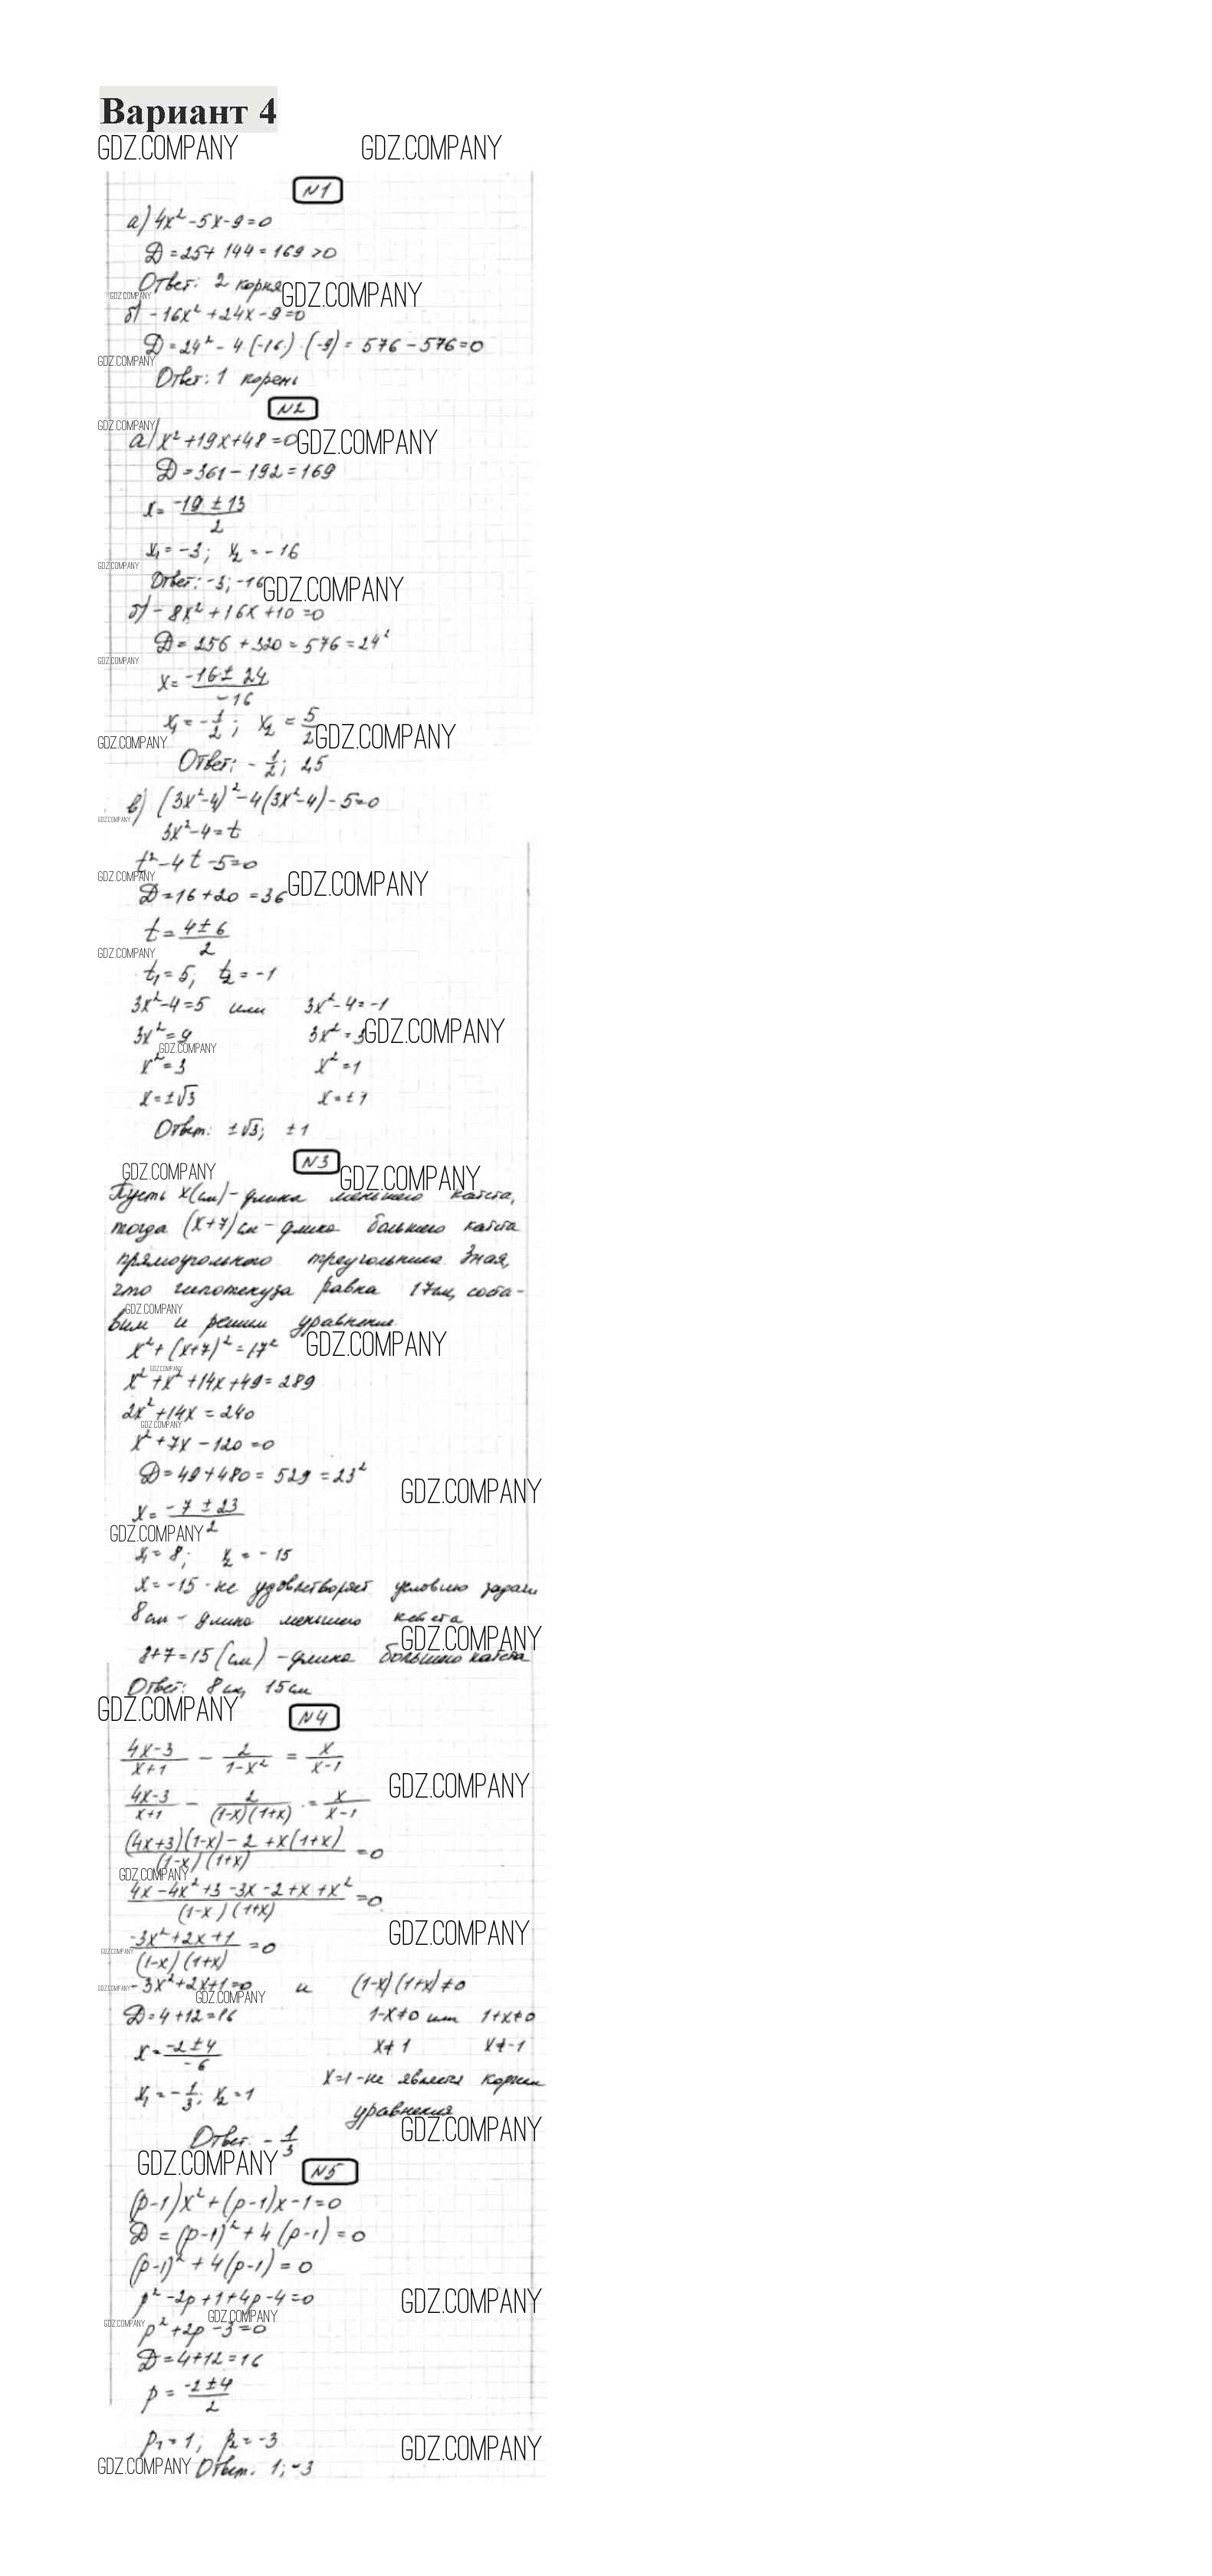 Вариант 4
GDZ.COMPANY GDZ.COMPANY
N1
а) 4x² - 5x - 9 = 0
D = 25 + 144 = 169 > 0
Ответ: 2 корня GDZ.COMPANY
GDZ.COMPANY
б) -16x² + 24x - 9 = 0
D = 24² - 4·(-16)·(-9) = 576 - 576 = 0
GDZ.COMPANY
Ответ: 1 корень
N2
GDZ.COMPANY
а) x² + 19x + 48 = 0 GDZ.COMPANY
D = 361 - 192 = 169
x = (-19 ± 13)/2
x₁ = -3; x₂ = -16
GDZ.COMPANY
Ответ: -3; -16 GDZ.COMPANY
б) -8x² + 16x + 10 = 0
D = 256 + 320 = 576 = 24²
GDZ.COMPANY
x = (-16 ± 24)/-16
x₁ = -1/2; x₂ = 5/2 GDZ.COMPANY
GDZ.COMPANY
Ответ: -1/2; 2,5
в) (3x²-4)² - 4(3x²-4) - 5 = 0
GDZ.COMPANY
3x² - 4 = t
t² - 4t - 5 = 0
GDZ.COMPANY GDZ.COMPANY
D = 16 + 20 = 36
t = (4 ± 6)/2
GDZ.COMPANY
t₁ = 5; t₂ = -1
3x² - 4 = 5 или 3x² - 4 = -1
3x² = 9 3x² = 3 GDZ.COMPANY
GDZ.COMPANY
x² = 3 x² = 1
x = ±√3 x = ±1
Ответ: ±√3; ±1
N3
GDZ.COMPANY GDZ.COMPANY
Пусть x(см) - длина меньшего катета,
тогда (x+7)см - длина большего катета
прямоугольного треугольника. Зная,
что гипотенуза равна 17см, соста-
GDZ.COMPANY
вим и решим уравнение.
x² + (x+7)² = 17² GDZ.COMPANY
GDZ.COMPANY
x² + x² + 14x + 49 = 289
2x² + 14x = 240
GDZ.COMPANY
x² + 7x - 120 = 0
D = 49 + 480 = 529 = 23²
GDZ.COMPANY
x = (-7 ± 23)/2
GDZ.COMPANY
x₁ = 8; x₂ = -15
x = -15 - не удовлетворяет условию задачи
8см - длина меньшего катета
GDZ.COMPANY
8+7=15(см) - длина большего катета
Ответ: 8см, 15см
GDZ.COMPANY N4
(4x-3)/(x+1) - 2/(1-x²) = x/(x-1)
GDZ.COMPANY
(4x-3)/(x+1) - 2/((1-x)(1+x)) = x/(x-1)
((4x+3)(1-x) - 2 + x(1+x))/((1-x)(1+x)) = 0
GDZ.COMPANY
(4x - 4x² + 3 - 3x - 2 + x + x²)/((1-x)(1+x)) = 0
GDZ.COMPANY
(-3x² + 2x + 1)/((1-x)(1+x)) = 0
GDZ.COMPANY
GDZ.COMPANY -3x² + 2x + 1 = 0 и (1-x)(1+x) ≠ 0
GDZ.COMPANY
D = 4 + 12 = 16 1-x≠0 или 1+x≠0
x = (-2 ± 4)/-6 x≠1 x≠-1
x=1 - не является корнем
x₁ = -1/3; x₂ = 1 уравнения
GDZ.COMPANY
Ответ: -1/3
GDZ.COMPANY N5
(p-1)x² + (p-1)x - 1 = 0
D = (p-1)² + 4(p-1) = 0
(p-1)² + 4(p-1) = 0
p² - 2p + 1 + 4p - 4 = 0 GDZ.COMPANY
GDZ.COMPANY GDZ.COMPANY
p² + 2p - 3 = 0
D = 4 + 12 = 16
p = (-2 ± 4)/2
p₁ = 1; p₂ = -3 GDZ.COMPANY
GDZ.COMPANY Ответ: 1; -3